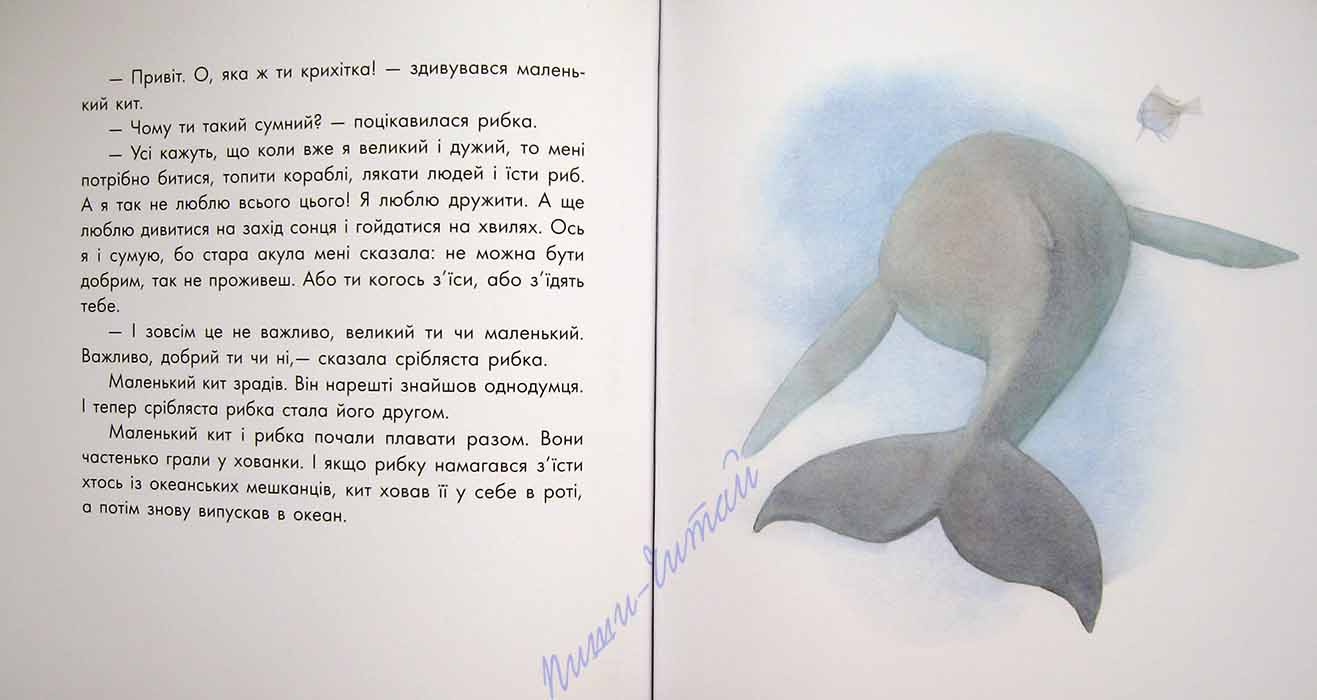 — Привіт. О, яка ж ти крихітка! — здивувався малень-
кий кит.
— Чому ти такий сумний? — поцікавилася рибка.
— Усі кажуть, що коли вже я великий і дужий, то мені
потрібно битися, топити кораблі, лякати людей і їсти риб.
А я так не люблю всього цього! Я люблю дружити. А ще
люблю дивитися на захід сонця і гойдатися на хвилях. Ось
я і сумую, бо стара акула мені сказала: не можна бути
добрим, так не проживеш. Або ти когось з’їси, або з’їдять
тебе.
— І зовсім це не важливо, великий ти чи маленький.
Важливо, добрий ти чи ні,— сказала срібляста рибка.
Маленький кит зрадів. Він нарешті знайшов однодумця.
І тепер срібляста рибка стала його другом.
Маленький кит і рибка почали плавати разом. Вони
частенько грали у хованки. І якщо рибку намагався з’їсти
хтось із океанських мешканців, кит ховав її у себе в роті,
а потім знову випускав в океан.
пиши-читай